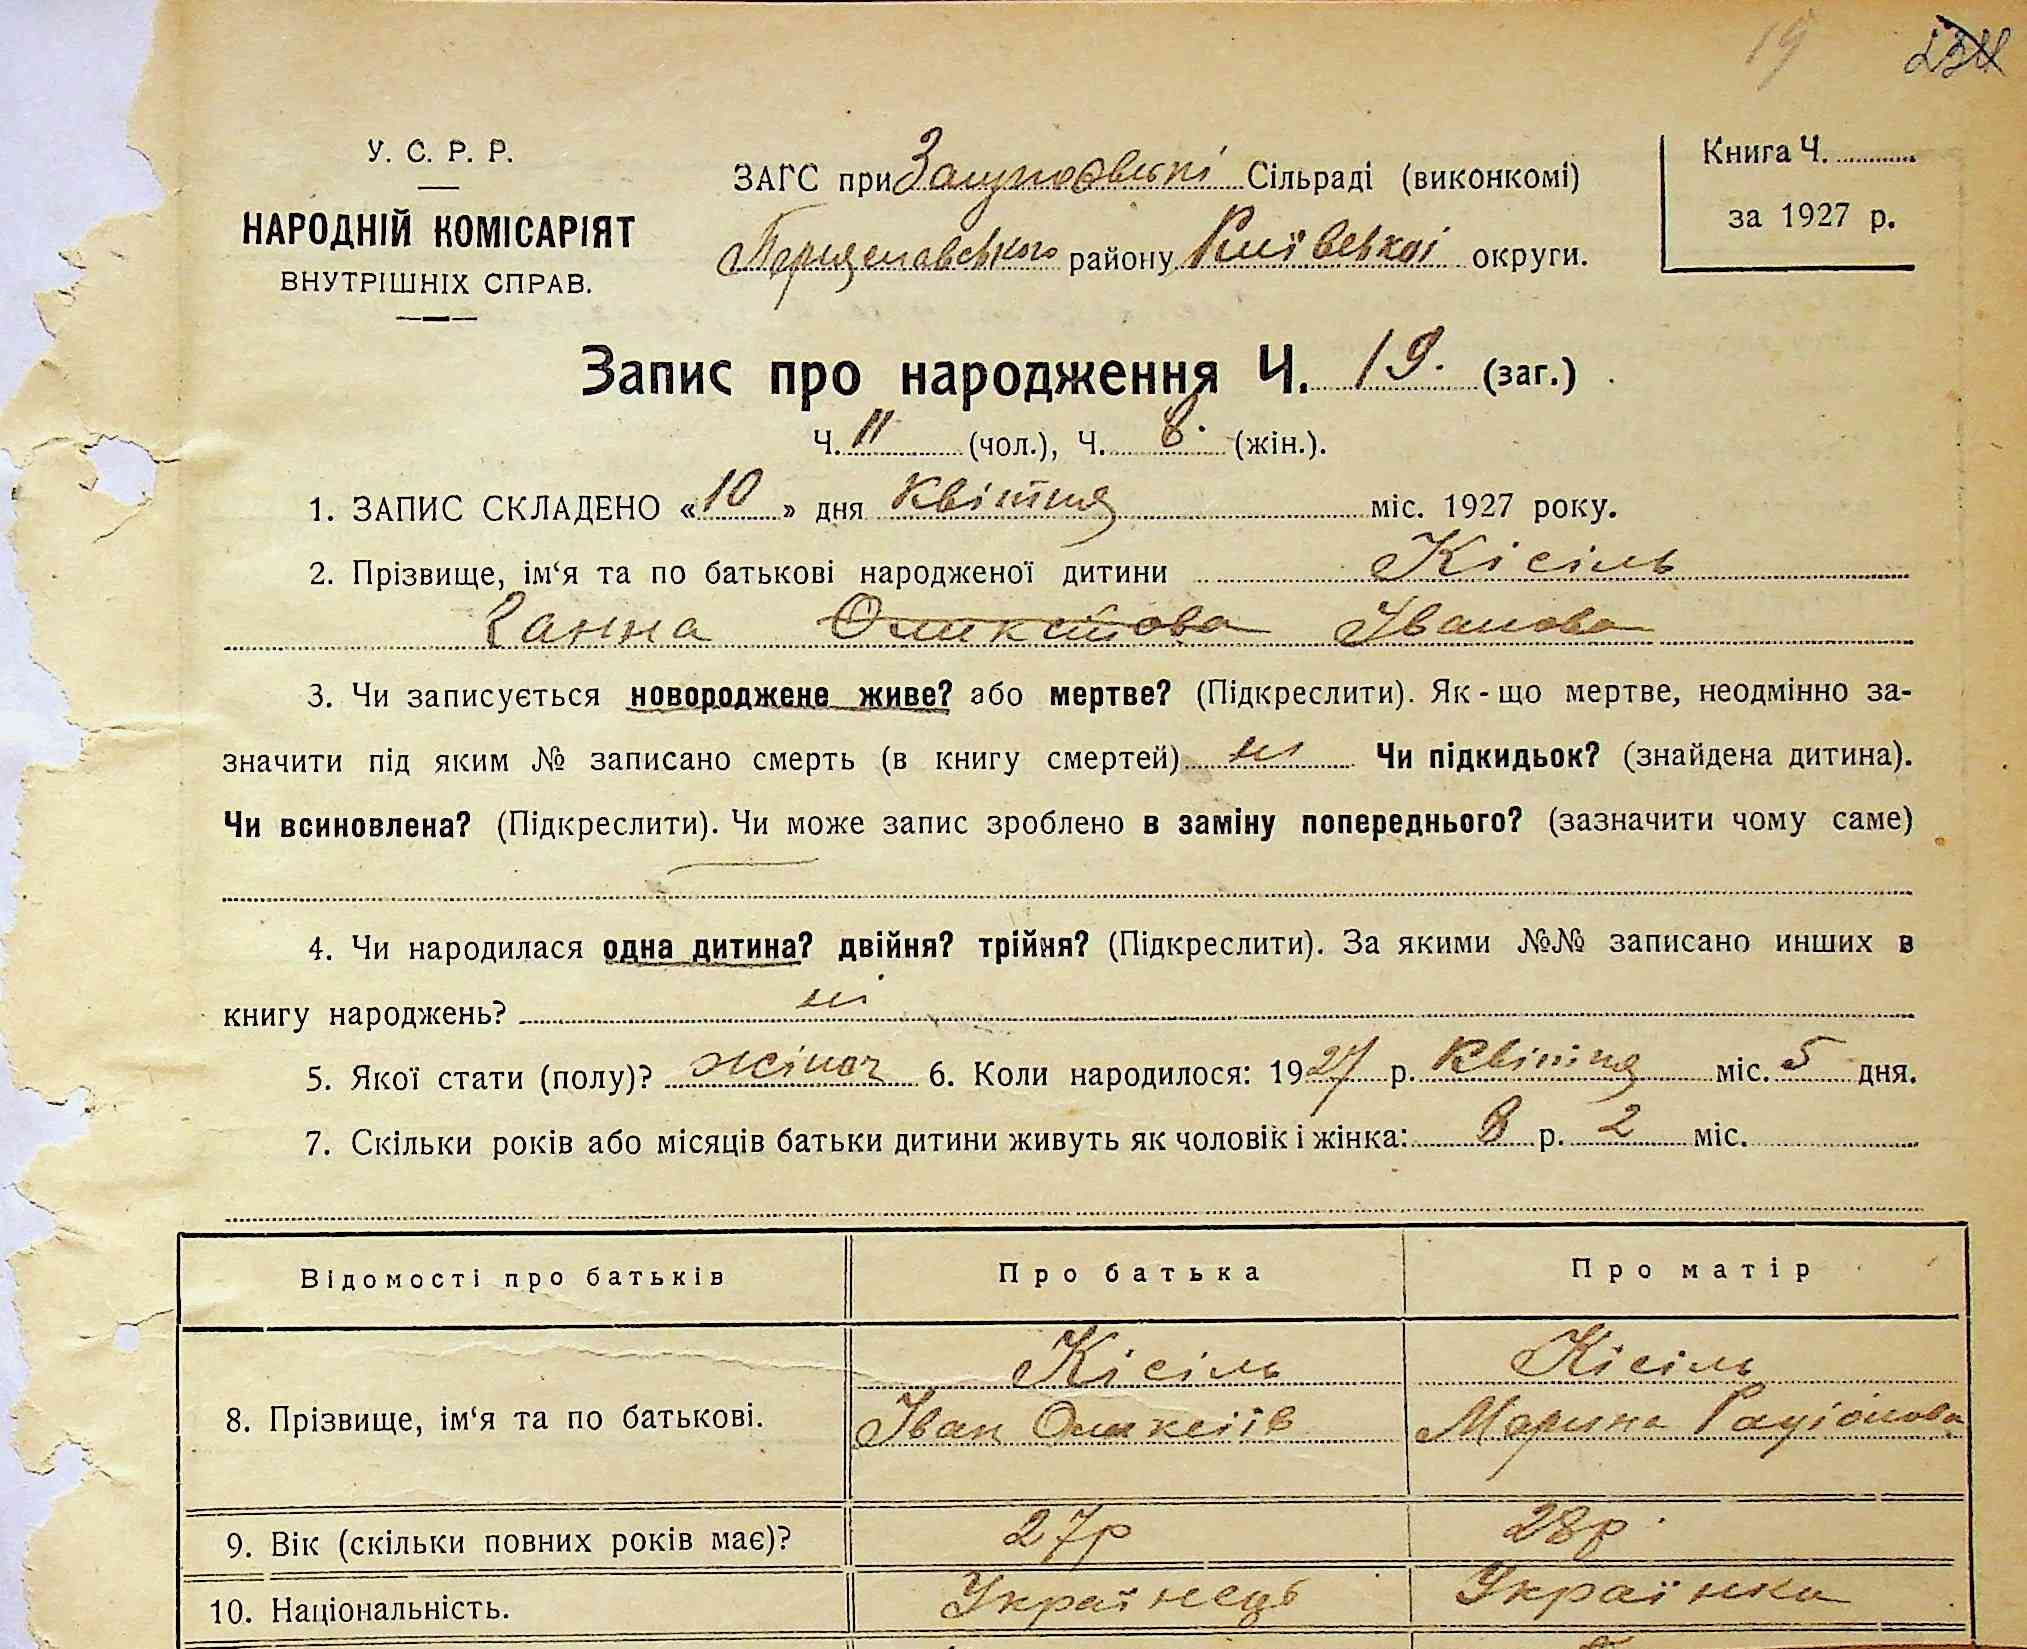 19 234
У. С. Р. Р.
НАРОДНІЙ КОМІСАРІЯТ
ВНУТРІШНІХ СПРАВ.
ЗАГС при Сільраді (виконкомі)
Переяславського району Київської округи.
Книга Ч.
за 1927 р.
Запис про народження Ч. 19. (заг.)
Ч. 11 (чол.), Ч. 8. (жін.).
1. ЗАПИС СКЛАДЕНО «10» дня Квітня міс. 1927 року.
2. Прізвище, ім‘я та по батькові народженої дитини Кісіль
Ганна Іванова
3. Чи записується новороджене живе? або мертве? (Підкреслити). Як-що мертве, неодмінно за-
значити під яким № записано смерть (в книгу смертей) ні Чи підкидьок? (знайдена дитина).
Чи всиновлена? (Підкреслити). Чи може запис зроблено в заміну попереднього? (зазначити чому саме)
4. Чи народилася одна дитина? двійня? трійня? (Підкреслити). За якими №№ записано инших в
книгу народжень? ні
5. Якої стати (полу)? жіноч 6. Коли народилося: 1927 р. Квітня міс. 5 дня.
7. Скільки років або місяців батьки дитини живуть як чоловік і жінка: 8 р. 2 міс.
Відомості про батьків Про батька Про матір
8. Прізвище, ім‘я та по батькові. Кісіль Кісіль
Іван Олексіїв Марина Радіонова
9. Вік (скільки повних років має)? 27р 28р.
10. Національність. Українець Українка